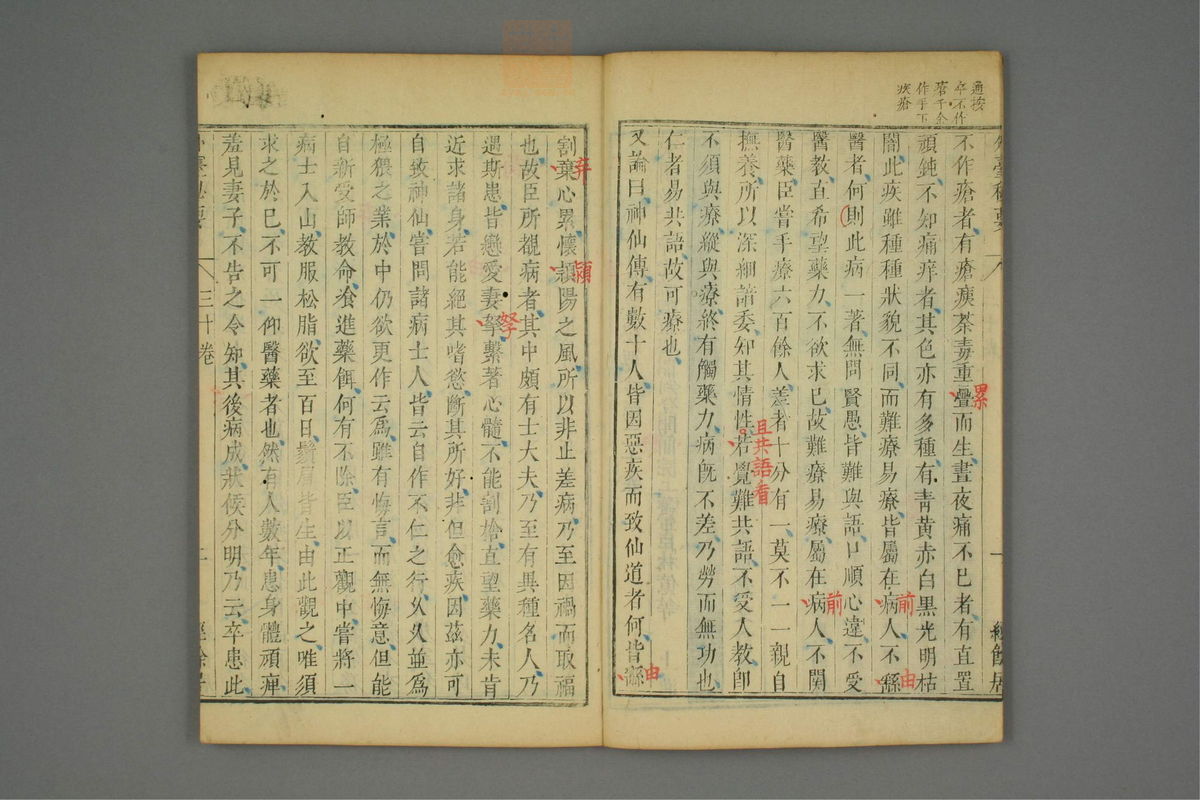 通按
卒不作
瘡千金
作手下
疾瘡
不作瘡者有瘡瘼荼毒重疊而生晝夜痛不已者有直置
累
頑鈍不知痛痒者其色亦有多種有青黃赤白黑光明枯
闇此疾雖種種狀貌不同而難療易療皆屬在病人不繇
前
由
醫者何則此病一著無問賢愚皆難與語口順心違不受
醫教直希望藥力不欲求已故難療易療屬在病人不關
前
醫藥臣嘗手療六百餘人差者十分有一莫不一一親自
撫養所以深細諳委知其情性若覺難共語不受人教卽
且共語看
不須與療縱與療終有觸藥力病旣不差乃勞而無功也
仁者易共語故可療也
又論曰神仙傳有數十人皆因惡疾而致仙道者何皆繇
由
割棄心累懷潁陽之風所以非止差病乃至因禍而取福
弃
潁
也故臣所覩病者其中頗有士大夫乃至有異種名人乃
遇斯患皆戀愛妻孥繫著心髓不能割捨直望藥力未肯
帑
近求諸身若能絕其嗜慾斷其所好非但愈疾因茲亦可
自致神仙嘗問諸病士人皆云自作不仁之行久久並爲
極猥之業於中仍欲更作云爲雖有悔言而無悔意但能
自新受師教命飡進藥餌何有不除臣以正觀中嘗將一
病士入山教服松脂欲至百日鬚眉皆生由此觀之唯須
求之於已不可一仰醫藥者也然有人數年患身體頑痺
羞見妻子不告之令知其後病成狀候分明乃云卒患此
外臺秘要
三十卷
二
經餘居